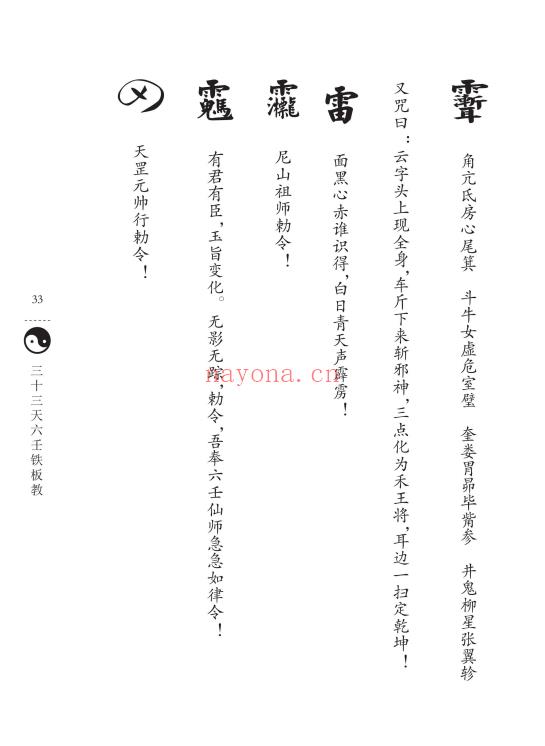 角亢氐房心尾箕 斗牛女虚危室壁 奎娄胃昴毕觜参 井鬼柳星张翼轸
又咒曰：云字头上现全身，车斤下来斩邪神，三点化为禾王将，耳边一扫定乾坤！
雷 面黑心赤谁识得，白日青天声霹雳！
尼山祖师勅令！
有君有臣，玉旨变化。无影无踪，勅令，吾奉六壬仙师急急如律令！
天罡元帅行勅令！
33
三十三天六壬铁板教
nayona.cn